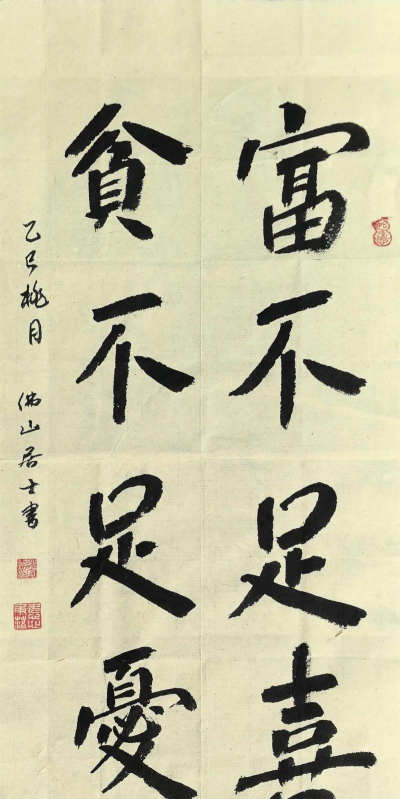 富不足喜
貧不足憂
乙巳桃月
佛山居士書